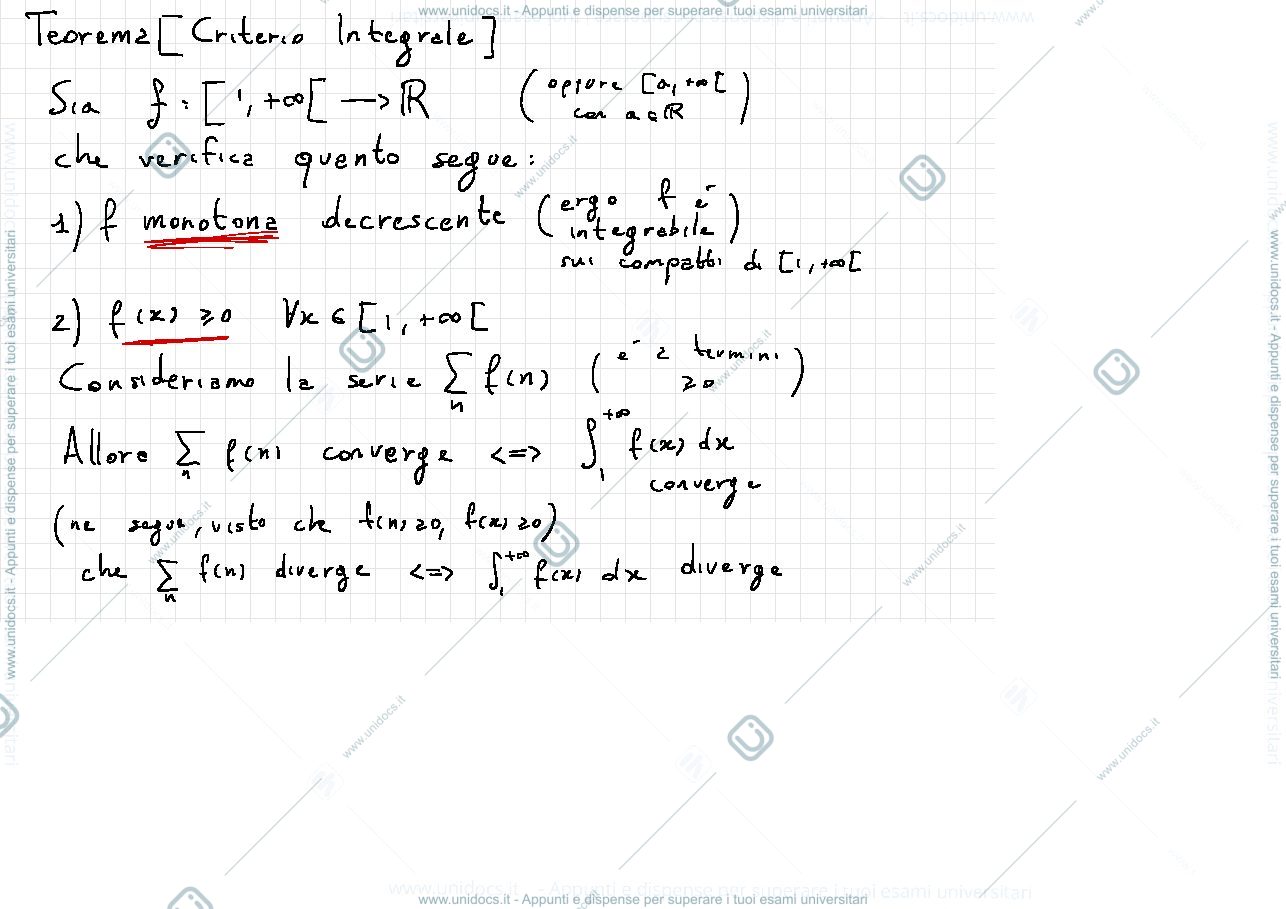 www.unidocs.it - Appunti e dispense per superare i tuoi esami universitari
Teorema [Criterio Integrale]
Sia f : [1, +∞[ → ℝ (oppure [a, +∞[ con a ∈ ℝ)
che verifica quanto segue:
1) f monotona decrescente (ergo f è integrabile)
sui compatti di [1, +∞[
2) f(x) ≥ 0 ∀x ∈ [1, +∞[
Consideriamo la serie ∑_n f(n) (è a termini ≥ 0)
Allora ∑_n f(n) converge <=> ∫_1^{+∞} f(x) dx
converge
(ne segue, visto che f(n) ≥ 0, f(x) ≥ 0)
che ∑_n f(n) diverge <=> ∫_1^{+∞} f(x) dx diverge
www.unidocs.it - Appunti e dispense per superare i tuoi esami universitari
www.unidocs.it - Appunti e dispense per superare i tuoi esami universitari
www.unidocs.it - Appunti e dispense per superare i tuoi esami universitari
www.unidocs.it
www.unidocs.it
www.unidocs.it
www.unidocs.it
www.unidocs.it
www.unidocs.it